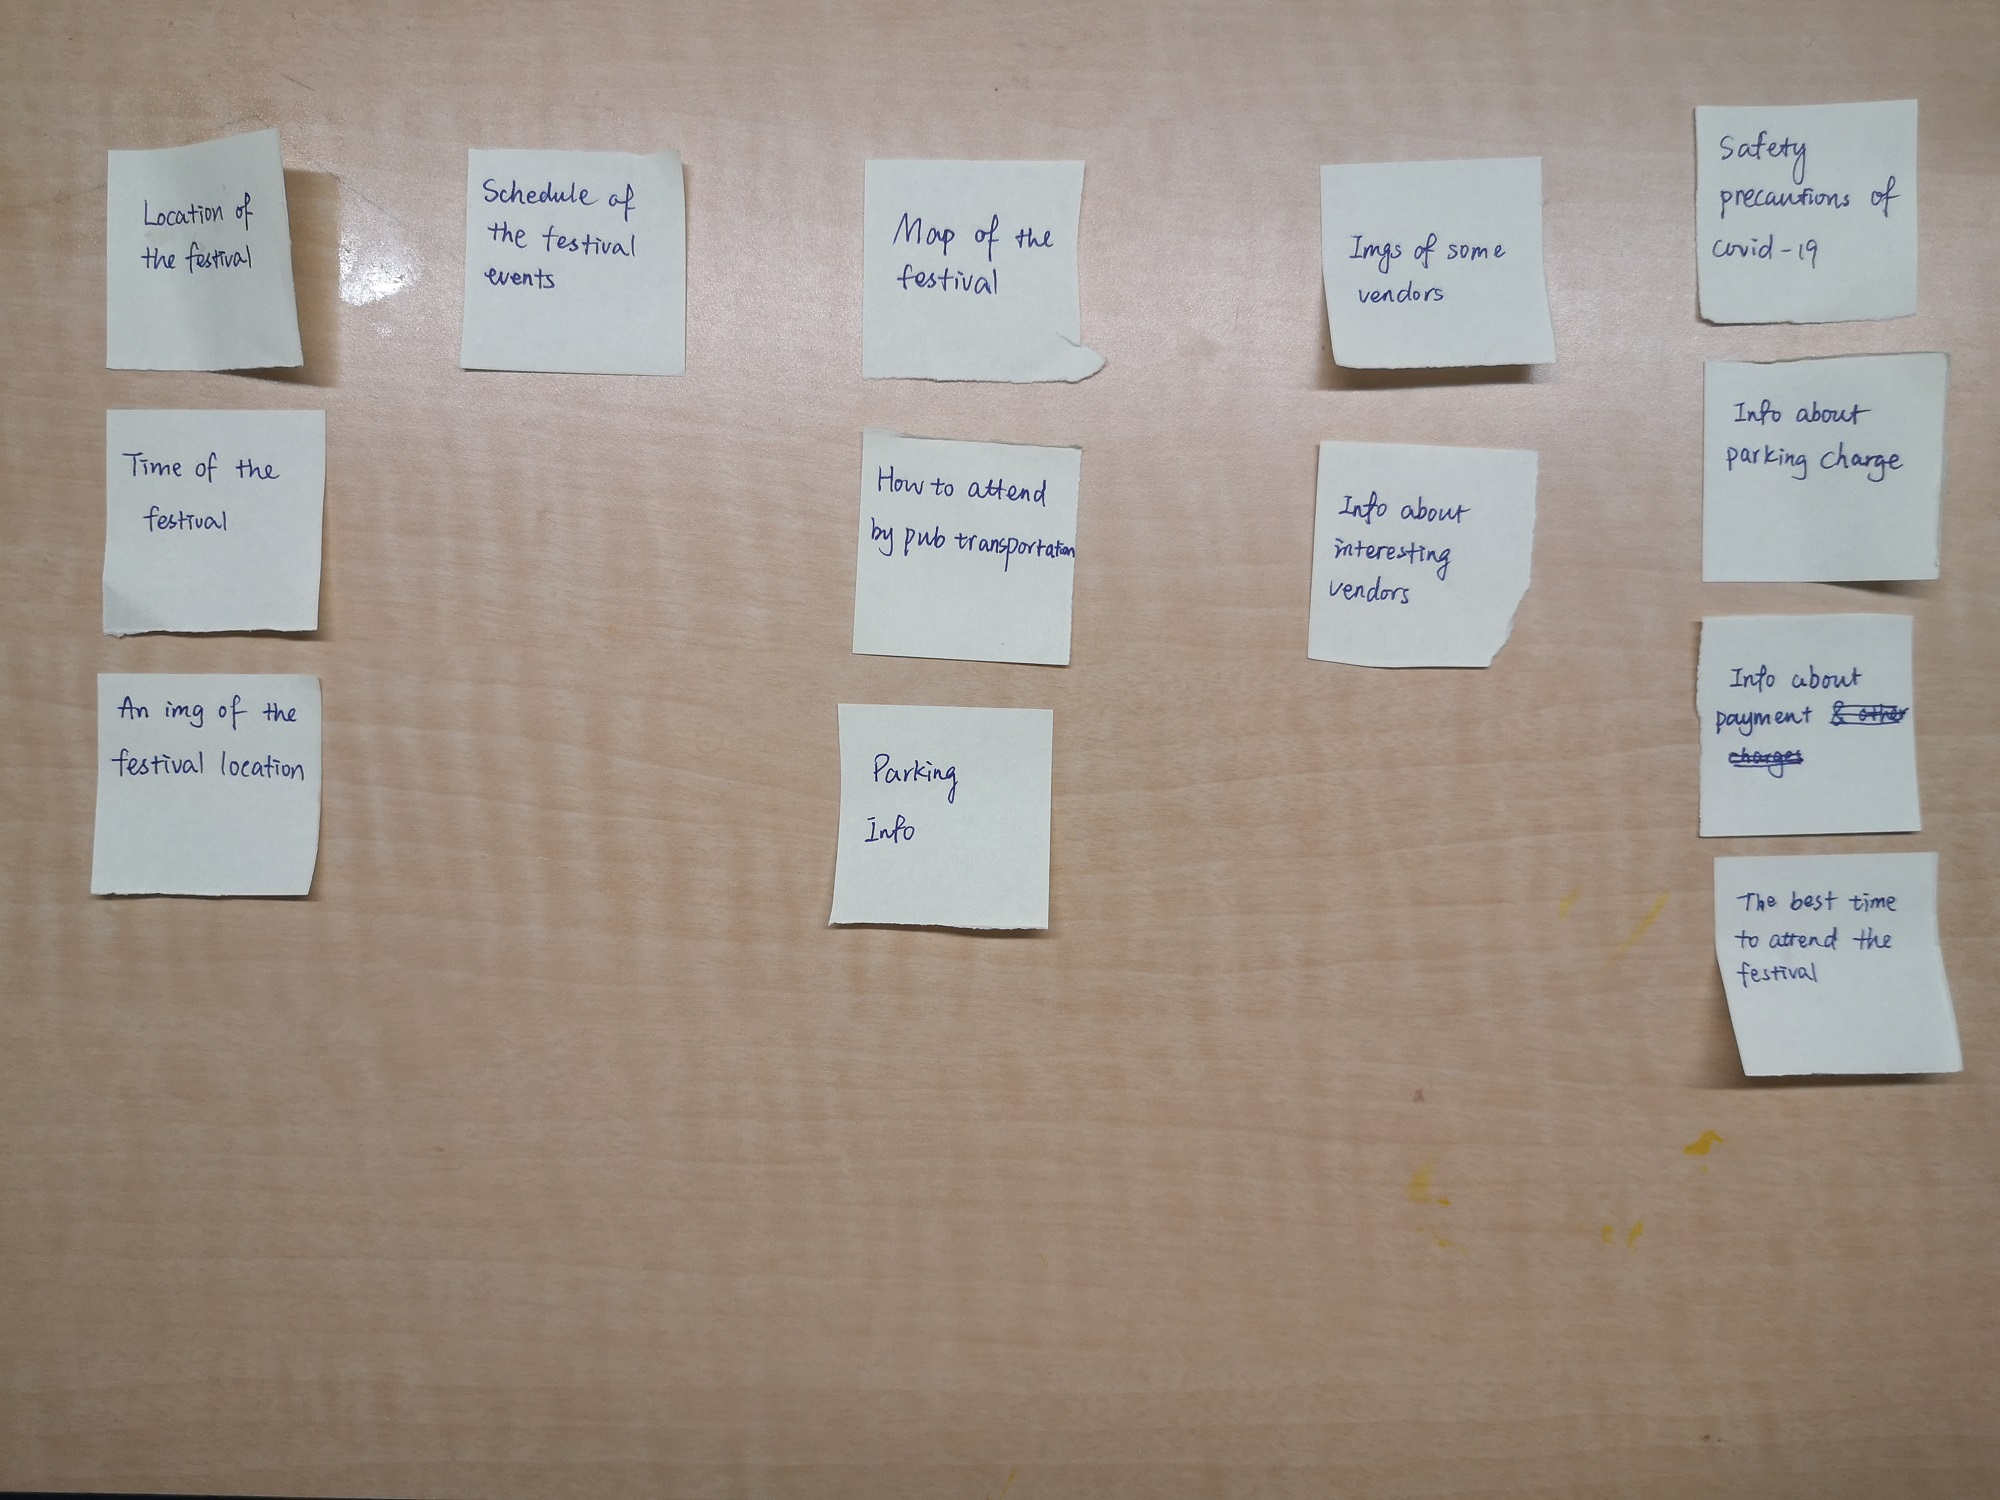 Location of
the festival
Time of the
festival
An img of the
festival location
Schedule of
the festival
events
Map of the
festival
How to attend
by pub transportation
Parking
Info
Imgs of some
vendors
Info about
interesting
vendors
Safety
precautions of
covid-19
Info about
parking charge
Info about
payment & other
charges
The best time
to attend the
festival